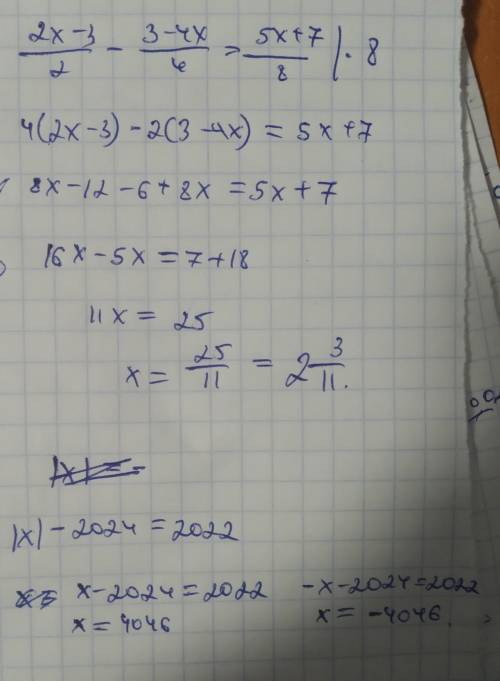 (2x-3)/2 - (3-4x)/4 = (5x+7)/8 | · 8
4(2x-3) - 2(3-4x) = 5x+7
8x-12-6+8x = 5x+7
16x-5x = 7+18
11x = 25
x = 25/11 = 2 3/11.
|x| - 2024 = 2022
x-2024 = 2022 -x-2024 = 2022
x = 4046 x = -4046.